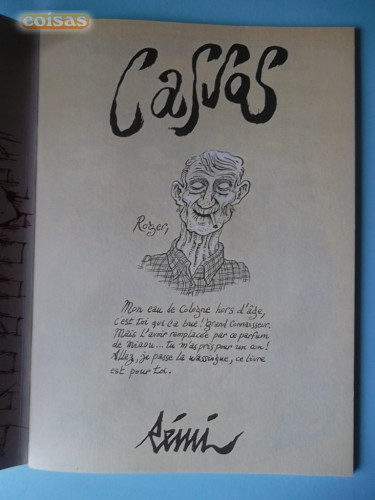 coisas
Cassos
Roger,
Mon eau de Cologne hors d'âge,
c'est toi qui l'a bue! Grand connaisseur.
Mais l'avoir remplacée par ce parfum
de niaou... tu m'as pris pour un con!
Allez, je passe la wassingue, ce livre
est pour toi.
Rémi